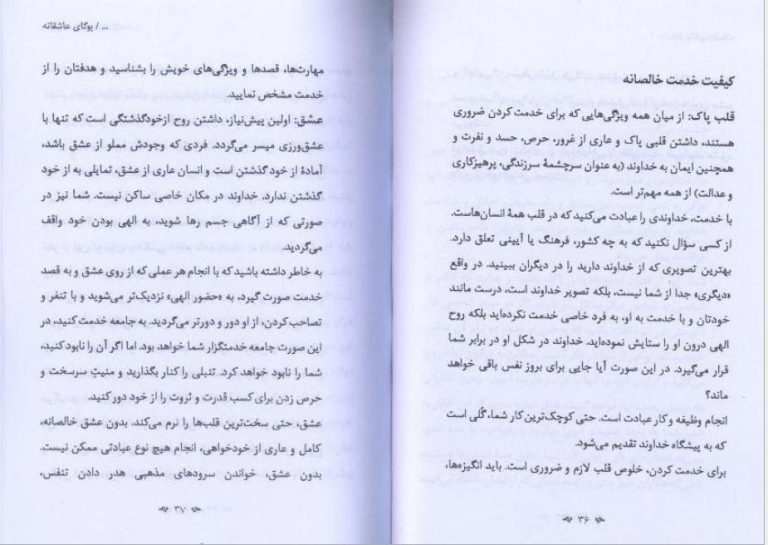 کیفیت خدمت خالصانه
قلب پاک: از میان همه ویژگی‌هایی که برای خدمت کردن ضروری
هستند، داشتن قلبی پاک و عاری از غرور، حرص، حسد و نفرت و
همچنین ایمان به خداوند (به عنوان سرچشمهٔ سرزندگی، پرهیزکاری
و عدالت) از همه مهم‌تر است.
با خدمت، خداوندی را عبادت می‌کنید که در قلب همهٔ انسان‌هاست.
از کسی سؤال نکنید که به چه کشور، فرهنگ یا آیینی تعلق دارد.
بهترین تصویری که از خداوند دارید را در دیگران ببینید. در واقع
«دیگری» جدا از شما نیست، بلکه تصویر خداوند است، درست مانند
خودتان و با خدمت به او، به فرد خاصی خدمت نکرده‌اید بلکه روح
الهی درون او را ستایش نموده‌اید. خداوند در شکل او در برابر شما
قرار می‌گیرد. در این صورت آیا جایی برای بروز نفس باقی خواهد
ماند؟
انجام وظیفه و کار عبادت است. حتی کوچک‌ترین کار شما، گلی است
که به پیشگاه خداوند تقدیم می‌شود.
برای خدمت کردن، خلوص قلب لازم و ضروری است. باید انگیزه‌ها،
۳۶
... / یوگای عاشقانه
مهارت‌ها، قصدها و ویژگی‌های خویش را بشناسید و هدفتان را از
خدمت مشخص نمایید.
عشق: اولین پیش‌نیاز، داشتن روح ازخودگذشتگی است که تنها با
عشق‌ورزی میسر می‌گردد. فردی که وجودش مملو از عشق باشد،
آمادهٔ از خود گذشتن است و انسان عاری از عشق، تمایلی به از خود
گذشتن ندارد. خداوند در مکان خاصی ساکن نیست. شما نیز در
صورتی که از آگاهی جسم رها شوید، به الهی بودن خود واقف
می‌گردید.
به خاطر داشته باشید که با انجام هر عملی که از روی عشق و به قصد
خدمت صورت گیرد، به «حضور الهی» نزدیک‌تر می‌شوید و با تنفر و
تصاحب کردن، از او دور و دورتر می‌گردید. به جامعه خدمت کنید، در
این صورت جامعه خدمتگزار شما خواهد بود. اما اگر آن را نابود کنید،
شما را نابود خواهد کرد. تنبلی را کنار بگذارید و منیتِ سرسخت و
حرص زدن برای کسب قدرت و ثروت را از خود دور کنید.
عشق، حتی سخت‌ترین قلب‌ها را نرم می‌کند. بدون عشق خالصانه،
کامل و عاری از خودخواهی، انجام هیچ نوع عبادتی ممکن نیست.
بدون عشق، خواندن سرودهای مذهبی هدر دادن تنفس،
۳۷